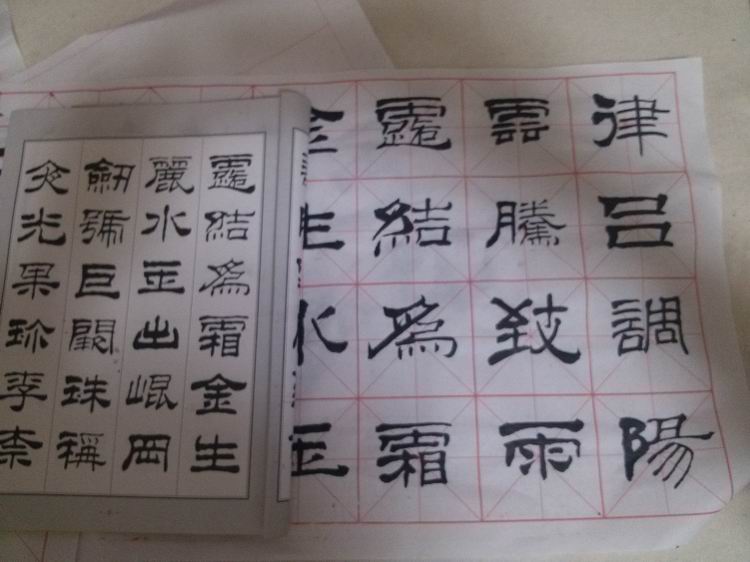 律呂調陽
雲騰致雨
露結爲霜
金生水玉
露結爲霜金生
麗水玉出崐岡
劒號巨闕珠稱
夜光果珍李柰